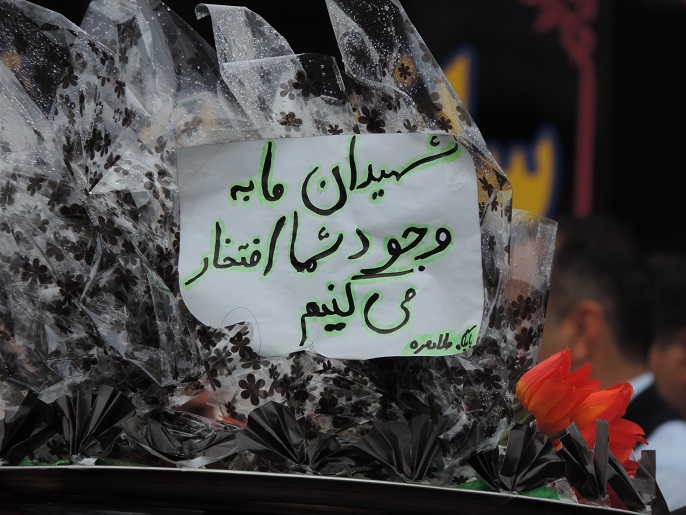 شهیدان ما به
وجود شما افتخار
می کنیم
پایگاه طاهره